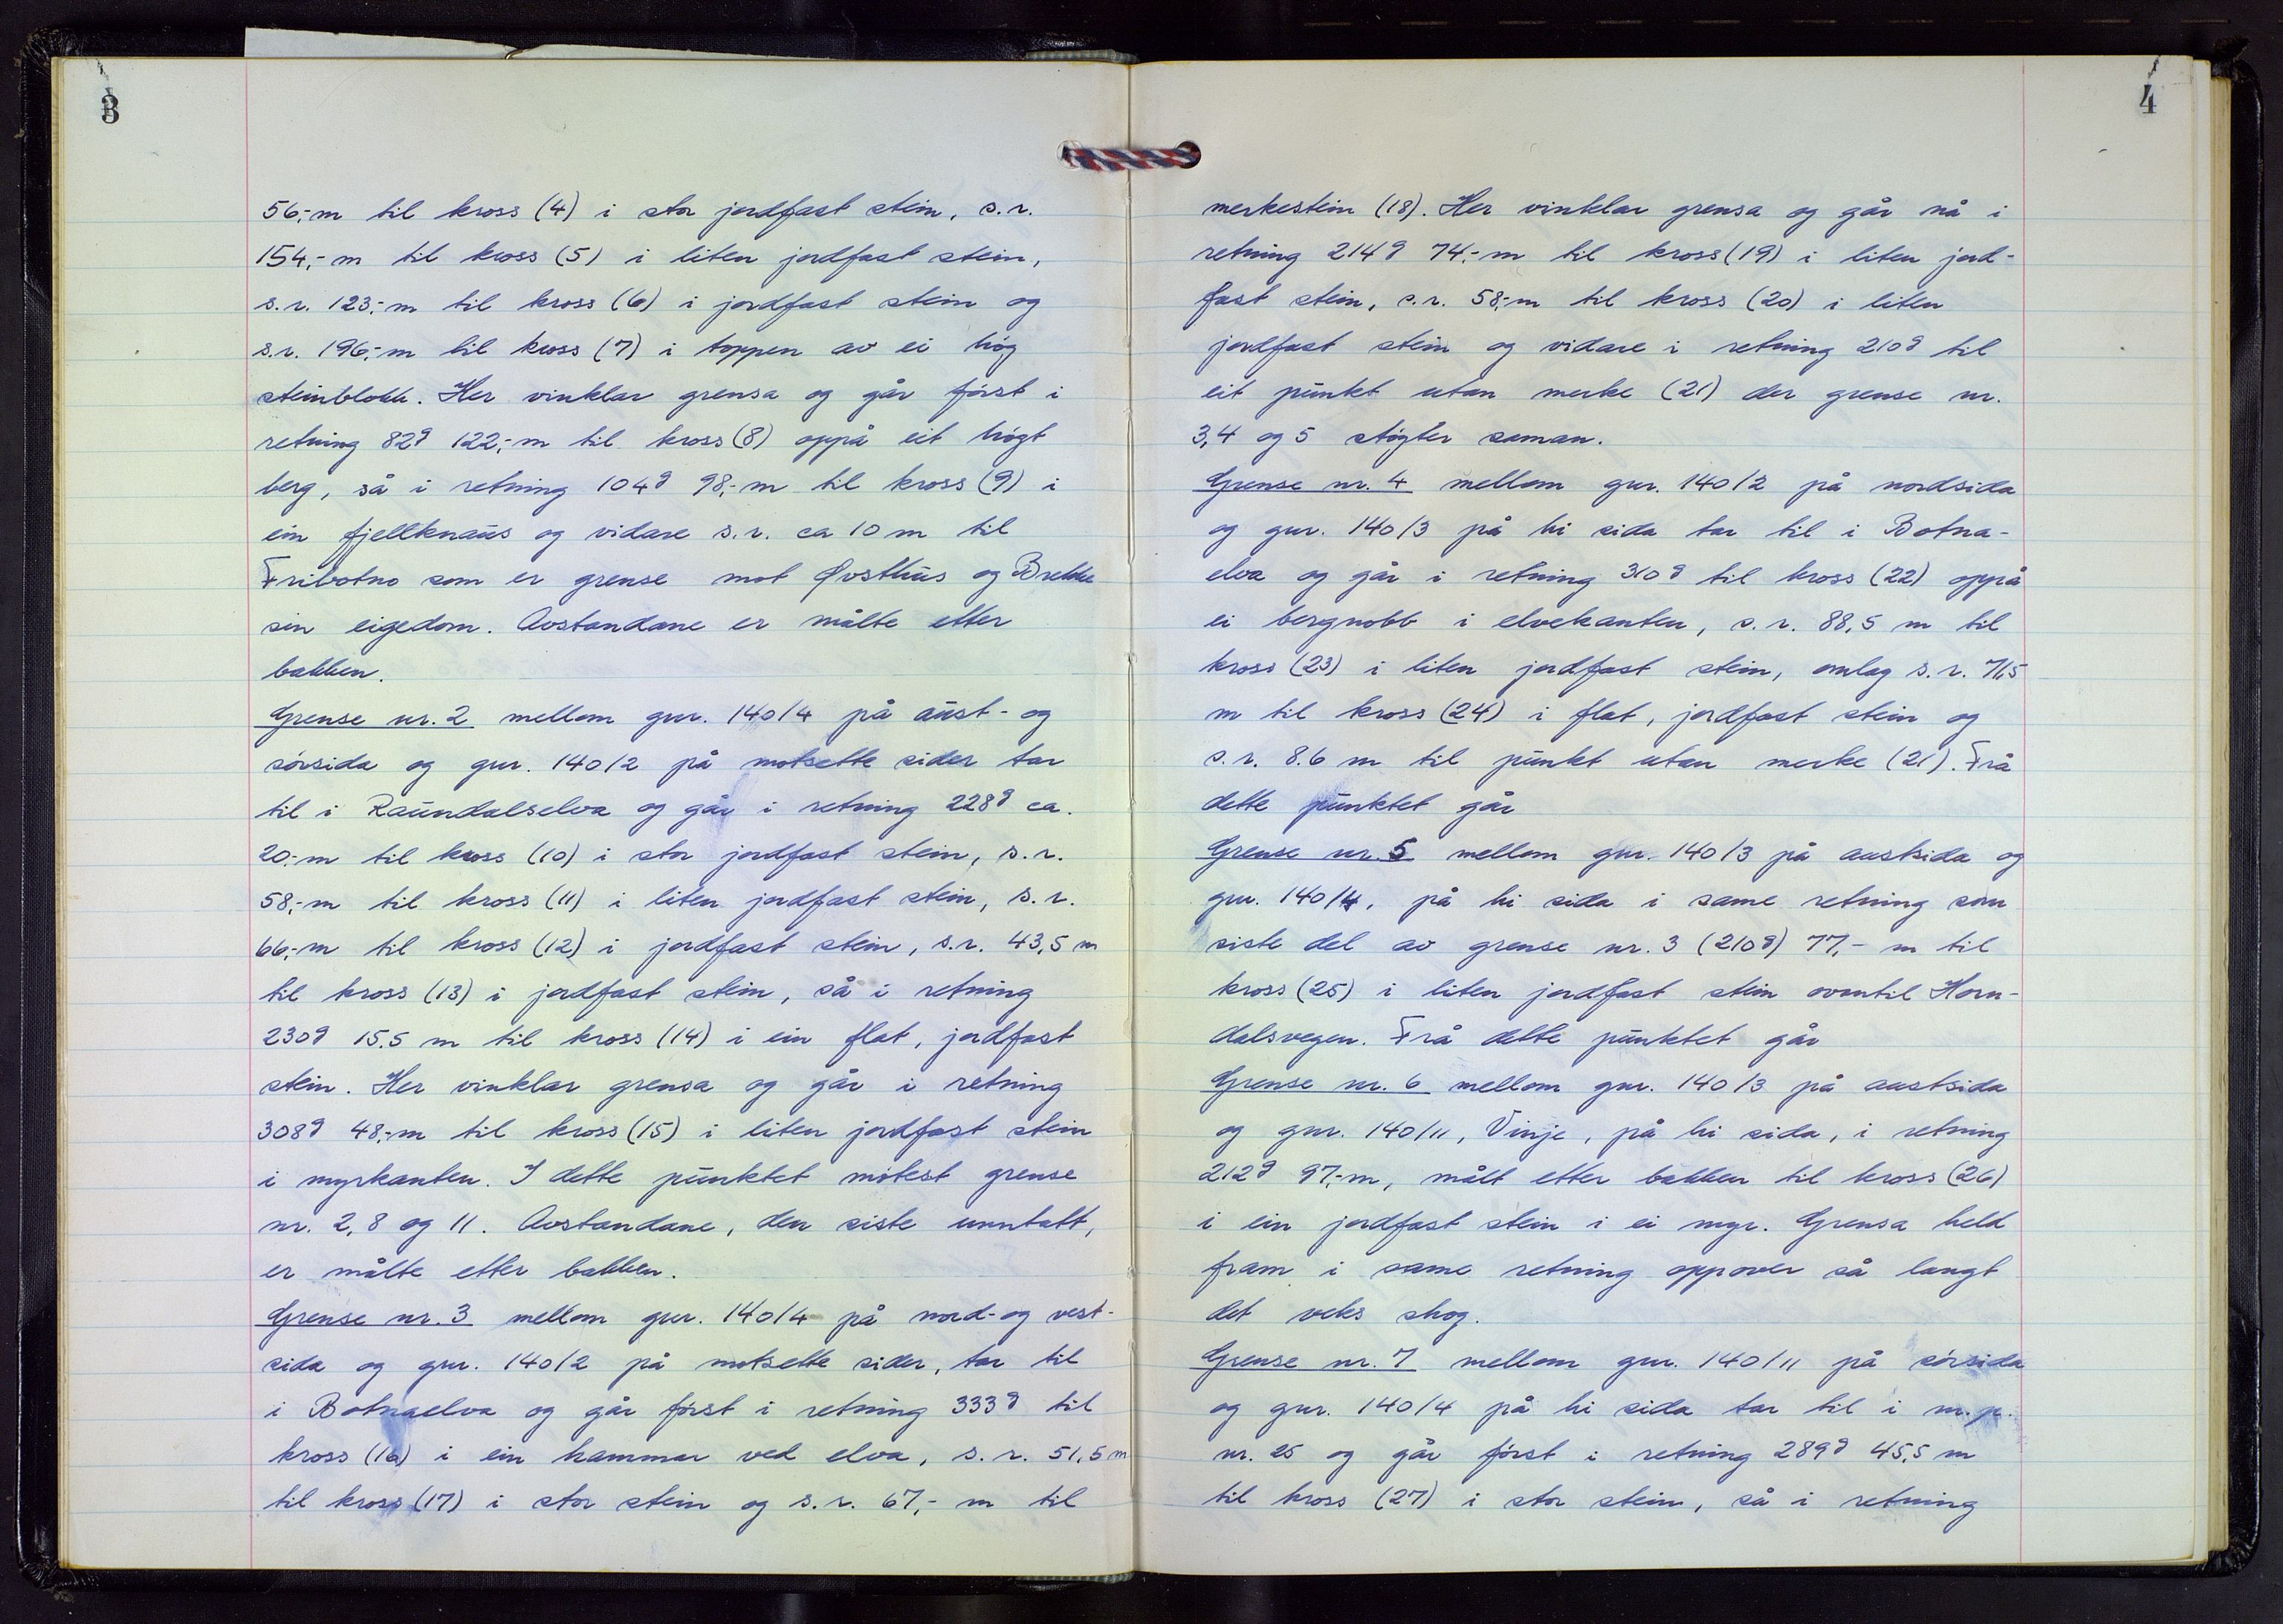 3
56,-m til kross (4) i stor jordfast stein, s.r.
154,-m til kross (5) i liten jordfast stein,
s.r. 123,-m til kross (6) i jordfast stein og
s.r. 196,-m til kross (7) i toppen av ei høg
steinblokk. Her vinklar grensa og går først i
retning 82g 122,-m til kross (8) oppå eit høgt
berg, så i retning 104g 98,-m til kross (9) i
ein fjellknaus og vidare s.r. ca 10 m til
Fribotno som er grense mot Øvsthus og Brekke
sin eigedom. Avstandane er målte etter
bakken.
Grense nr. 2 mellom gnr. 140/4 på aust- og
sørsida og gnr. 140/2 på motsette sider tar
til i Raundalselva og går i retning 228g ca.
20,-m til kross (10) i stor jordfast stein, s.r.
58,-m til kross (11) i liten jordfast stein, s.r.
66,-m til kross (12) i jordfast stein, s.r. 43,5 m
til kross (13) i jordfast stein, så i retning
230g 15.5 m til kross (14) i ein flat, jordfast
stein. Her vinklar grensa og går i retning
308g 48,-m til kross (15) i liten jordfast stein
i myrkanten. I dette punktet møtest grense
nr. 2, 8 og 11. Avstandane, den siste unntatt,
er målte etter bakken.
Grense nr. 3 mellom gnr. 140/4 på nord- og vest-
sida og gnr. 140/2 på motsette sider, tar til
i Botnaelva og går først i retning 333g til
kross (16) i ein hammar ved elva, s.r. 51,5 m
til kross (17) i stor stein og s.r. 67,- m til
4
merkestein (18). Her vinklar grensa og går nå i
retning 214g 74,-m til kross (19) i liten jord-
fast stein, s.r. 58,-m til kross (20) i liten
jordfast stein og vidare i retning 210g til
eit punkt utan merke (21) der grense nr.
3,4 og 5 støyter saman.
Grense nr. 4 mellom gnr. 140/2 på nordsida
og gnr. 140/3 på hi sida tar til i Botna-
elva og går i retning 310g til kross (22) oppå
ei bergnobb i elvekanten, s.r. 88,5 m til
kross (23) i liten jordfast stein, omlag s.r. 71,5
m til kross (24) i flat, jordfast stein og
s.r. 8.6 m til punkt utan merke (21). Frå
dette punktet går
Grense nr. 5 mellom gnr. 140/3 på austsida og
gnr. 140/4, på hi sida i same retning som
siste del av grense nr. 3 (210g) 77,- m til
kross (25) i liten jordfast stein ovantil Horn-
dalsvegen. Frå dette punktet går
Grense nr. 6 mellom gnr. 140/3 på austsida
og gnr. 140/11, Vinje, på hi sida, i retning
212g 97,-m, målt etter bakken til kross (26)
i ein jordfast stein i ei myr. Grensa held
fram i same retning oppover så langt
det veks skog.
Grense nr. 7 mellom gnr. 140/11 på sørsida
og gnr. 140/4 på hi sida tar til i m.p.
nr. 25 og går først i retning 289g 45,5 m
til kross (27) i stor stein, så i retning